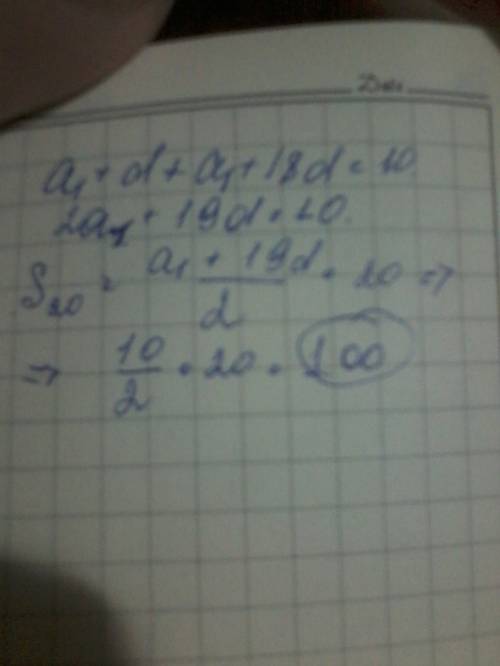 Date
a₁ + d + a₁ + 18d = 10
2a₁ + 19d = 10.
S₂₀ = (a₁ + 19d)/2 · 20 ⇒
⇒ 10/2 · 20 = 100